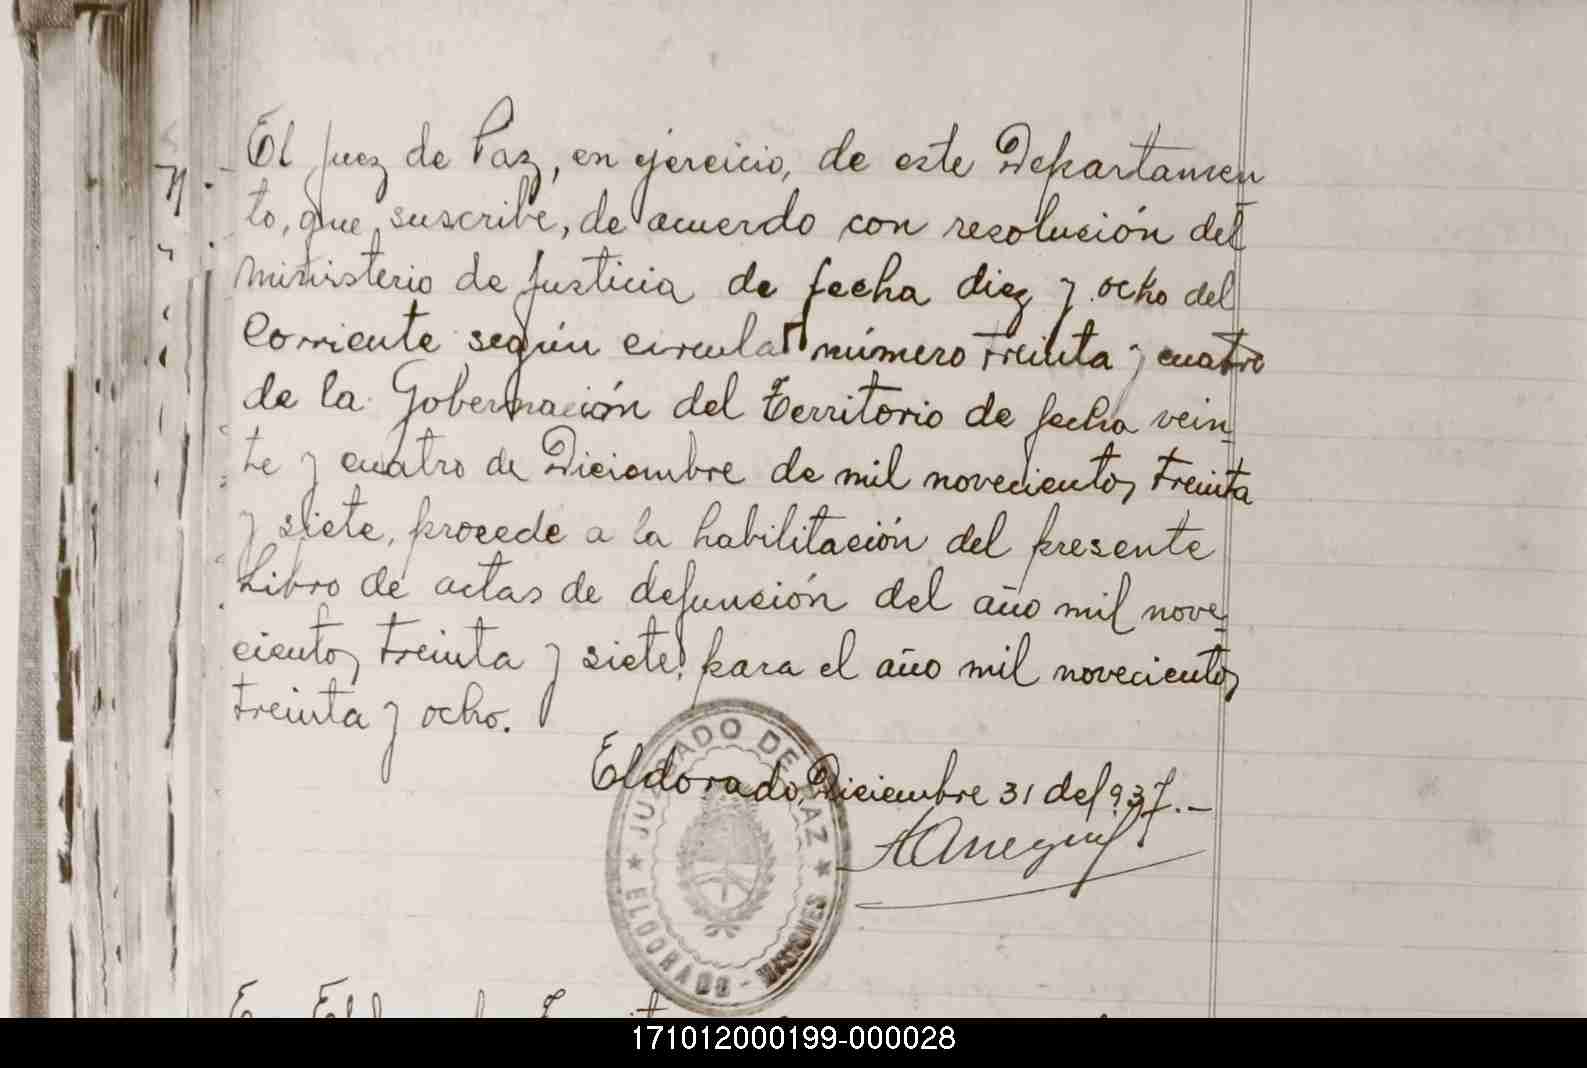 El Juez de Paz, en ejercicio, de este Departamen
to, que suscribe, de acuerdo con resolución del
Ministerio de Justicia de fecha diez y ocho del
Corriente según circular número treinta y cuatro
de la Gobernación del Territorio de fecha vein
te y cuatro de Diciembre de mil novecientos treinta
y siete, procede a la habilitación del presente
Libro de actas de defunción del año mil nove-
cientos treinta y siete, para el año mil novecientos
treinta y ocho.
Eldorado, Diciembre 31 del 937.-
JUZGADO DE PAZ
ELDORADO - MISIONES
171012000199-000028